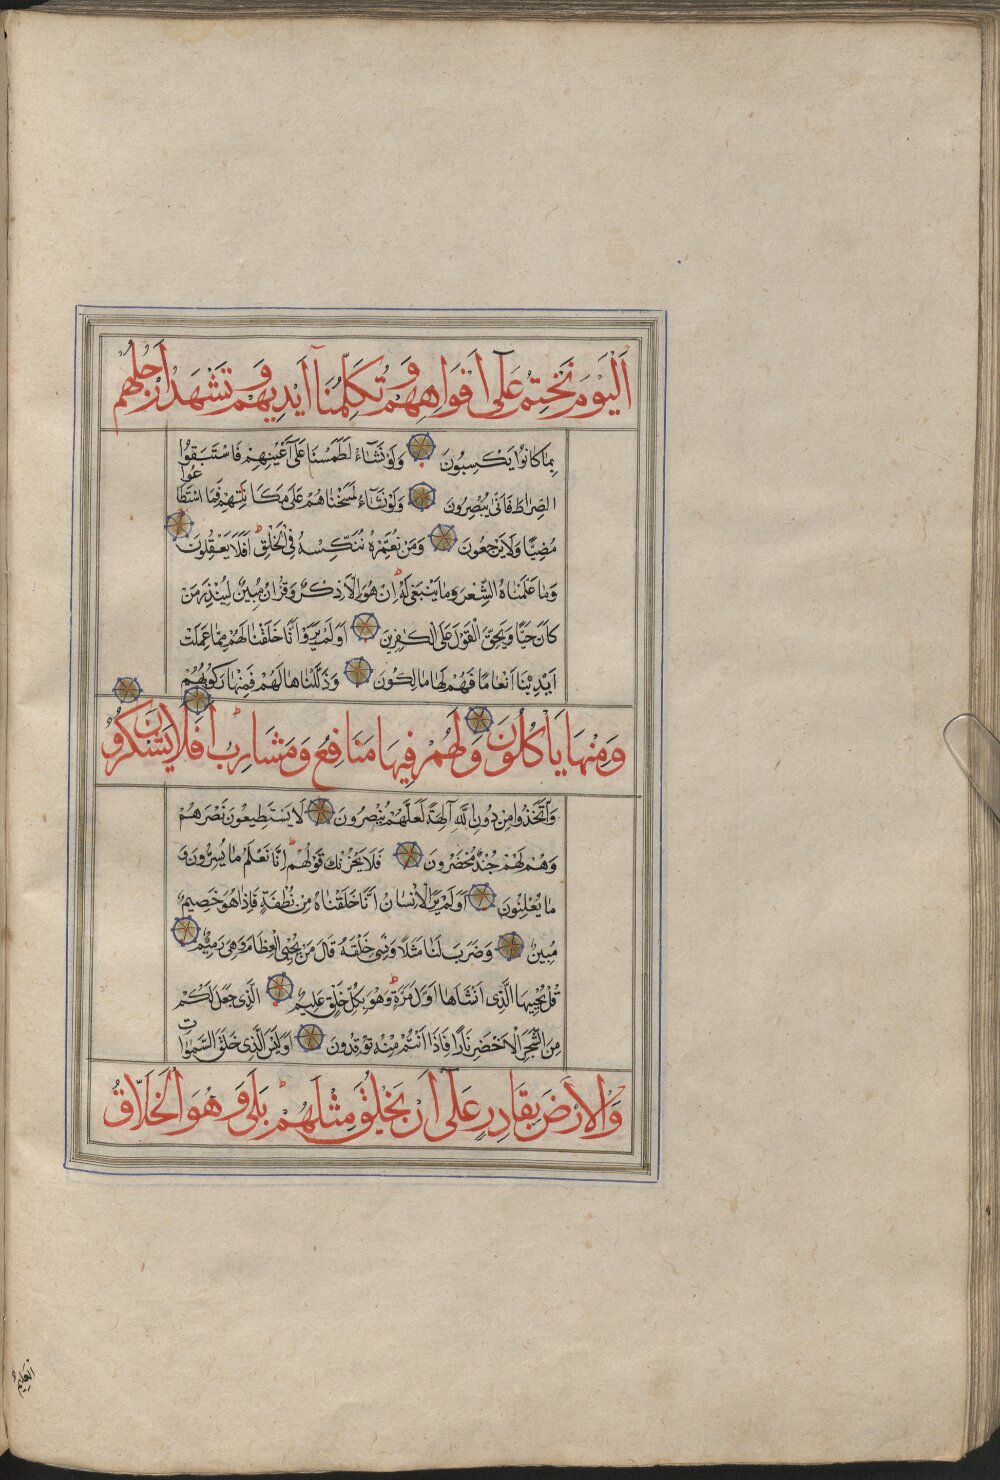 اَلْيَوْمَ نَخْتِمُ عَلٰى اَفْوَاهِهِمْ وَتُكَلِّمُنَا اَيْدِيهِمْ وَتَشْهَدُ اَرْجُلُهُمْ
بِمَا كَانُوا يَكْسِبُونَ وَلَوْ نَشَآءُ لَطَمَسْنَا عَلٰى اَعْيُنِهِمْ فَاسْتَبَقُوا
الصِّرَاطَ فَاَنّٰى يُبْصِرُونَ وَلَوْ نَشَآءُ لَمَسَخْنَاهُمْ عَلٰى مَكَانَتِهِمْ فَمَا اسْتَطَاعُوا
مُضِيًّا وَلَا يَرْجِعُونَ وَمَنْ نُعَمِّرْهُ نُنَكِّسْهُ فِى الْخَلْقِ اَفَلَا يَعْقِلُونَ
وَمَا عَلَّمْنَاهُ الشِّعْرَ وَمَا يَنْبَغِى لَهُ اِنْ هُوَ اِلَّا ذِكْرٌ وَقُرْاٰنٌ مُبِينٌ لِيُنْذِرَ مَنْ
كَانَ حَيًّا وَيَحِقَّ الْقَوْلُ عَلَى الْكٰفِرِينَ اَوَلَمْ يَرَوْا اَنَّا خَلَقْنَا لَهُمْ مِمَّا عَمِلَتْ
اَيْدِينَا اَنْعَامًا فَهُمْ لَهَا مَالِكُونَ وَذَلَّلْنَاهَا لَهُمْ فَمِنْهَا رَكُوبُهُمْ
وَمِنْهَا يَاْكُلُونَ وَلَهُمْ فِيهَا مَنَافِعُ وَمَشَارِبُ اَفَلَا يَشْكُرُونَ
وَاتَّخَذُوا مِنْ دُونِ اللّٰهِ اٰلِهَةً لَعَلَّهُمْ يُنْصَرُونَ لَا يَسْتَطِيعُونَ نَصْرَهُمْ
وَهُمْ لَهُمْ جُنْدٌ مُحْضَرُونَ فَلَا يَحْزُنْكَ قَوْلُهُمْ اِنَّا نَعْلَمُ مَا يُسِرُّونَ وَ
مَا يُعْلِنُونَ اَوَلَمْ يَرَ الْاِنْسَانُ اَنَّا خَلَقْنَاهُ مِنْ نُطْفَةٍ فَاِذَا هُوَ خَصِيمٌ
مُبِينٌ وَضَرَبَ لَنَا مَثَلًا وَنَسِىَ خَلْقَهُ قَالَ مَنْ يُحْيِى الْعِظَامَ وَهِىَ رَمِيمٌ
قُلْ يُحْيِيهَا الَّذِى اَنْشَاَهَا اَوَّلَ مَرَّةٍ وَهُوَ بِكُلِّ خَلْقٍ عَلِيمٌ الَّذِى جَعَلَ لَكُمْ
مِنَ الشَّجَرِ الْاَخْضَرِ نَارًا فَاِذَا اَنْتُمْ مِنْهُ تُوقِدُونَ اَوَلَيْسَ الَّذِى خَلَقَ السَّمٰوَاتِ
وَالْاَرْضَ بِقَادِرٍ عَلٰٓى اَنْ يَخْلُقَ مِثْلَهُمْ بَلٰى وَهُوَ الْخَلَّاقُ
العليم